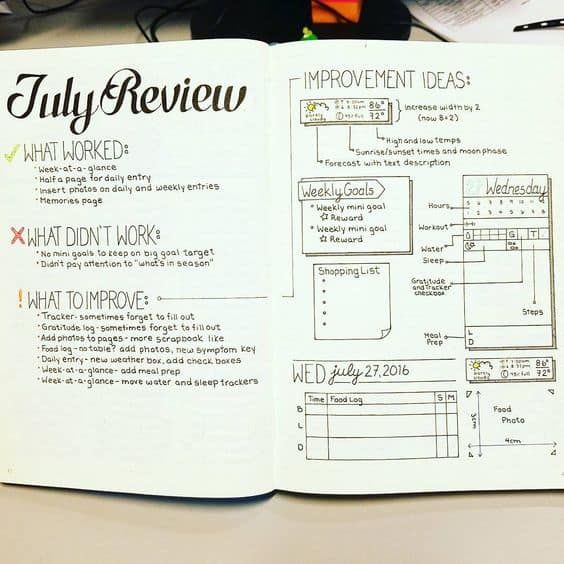 July Review
WHAT WORKED:
• Week-at-a-glance
• Half a page for daily entry
• Insert photos on daily and weekly entries
• Memories page
WHAT DIDN'T WORK:
• No mini goals to keep on big goal target
• Didn't pay attention to "what's in season"
WHAT TO IMPROVE:
• Tracker- sometimes forget to fill out
• Gratitude log- sometimes forget to fill out
• Add photos to pages- more scrapbook like
• Food log- notable? add photos, new symptom key
• Daily entry- new weather box, add check boxes
• Week-at-a-glance- add meal prep
• Week-at-a-glance- move water and sleep trackers
IMPROVEMENT IDEAS:
86°
72°
Increase width by 2
(now 8×2)
High and low temps
Sunrise/sunset times and moon phase
Forecast with text description
Weekly Goals
• Weekly mini goal
Reward
• Weekly mini goal
Reward
Shopping List
Wednesday
Hours
Workout
Water
Sleep
G
T
Gratitude
and Tracker
checkbox
Steps
Meal
Prep
L
D
WED july 27, 2016
86°
72°
Time Food Log S M
B
L
D
Food
Photo
3cm
4cm